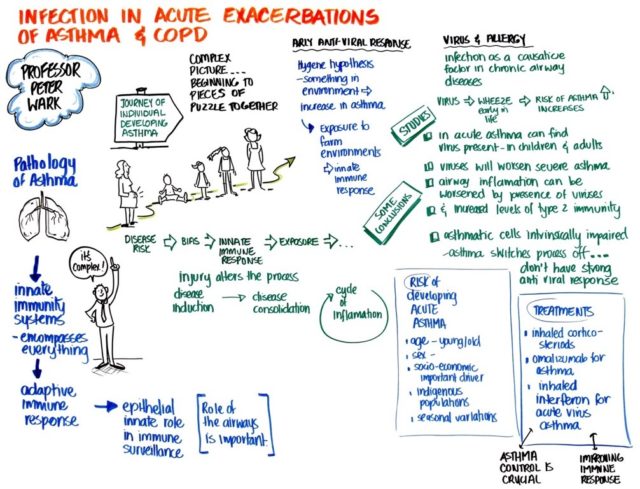 INFECTION IN ACUTE EXACERBATIONS
OF ASTHMA & COPD
PROFESSOR
PETER
WARK
JOURNEY OF
INDIVIDUAL
DEVELOPING
ASTHMA
COMPLEX
PICTURE....
BEGINNING TO
PIECES OF
PUZZLE TOGETHER
Pathology
of Asthma
it's
Complex!
innate
immunity
systems
- encompasses
everything
adaptive
immune
response
epithelial
innate role
in immune
surveillance
Role of
the airways
is important.
DISEASE
RISK
BIAS
INNATE
IMMUNE
RESPONSE
EXPOSURE
...
injury alters the process
disease
induction
disease
consolidation
cycle
of
inflamation
ARLY ANTI-VIRAL RESPONSE
Hygene hypothesis
- something in
environment
increase in asthma
Exposure to
farm
environments
innate
immune
response
VIRUS & ALLERGY
infection as a causative
factor in chronic airway
diseases
VIRUS
WHEEZE
early in
life
RISK OF ASTHMA
INCREASES
STUDIES
in acute asthma can find
virus present - in children & adults
viruses will worsen severe asthma
SOME
CONCLUSIONS
airway inflamation can be
worsened by presence of viruses
& increased levels of type 2 immunity
asthmatic cells intrinsically impaired
- asthma switches process off...
don't have strong
anti viral response
RISK of
developing
ACUTE
ASTHMA
age - young/old
sex -
socio-economic
important driver
indigenous
populations
seasonal variations
TREATMENTS
inhaled cortico-
steriods
omalizumab for
asthma
inhaled
interferon for
acute virus
asthma
ASTHMA
CONTROL IS
CRUCIAL
IMPROVING
IMMUNE
RESPONSE